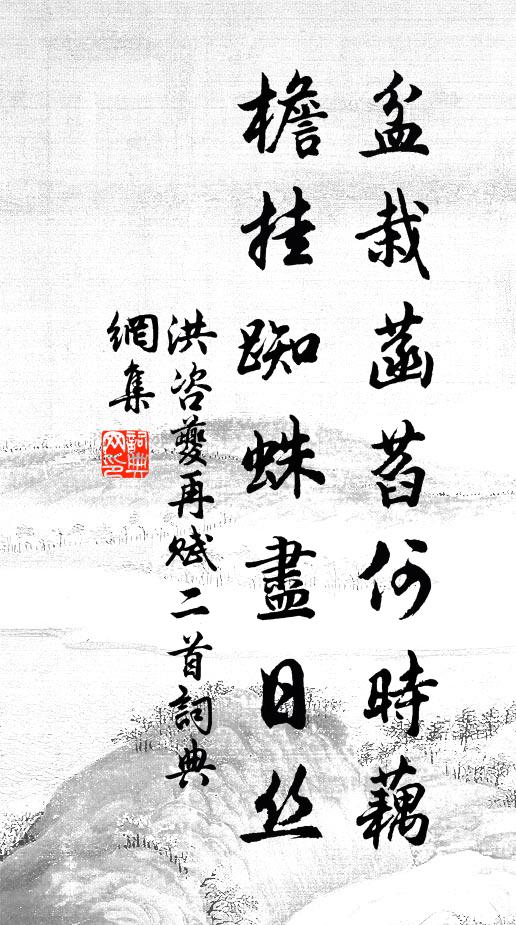 盆栽菡萏何時藕
檐挂蜘蛛盡日丝
洪咨夔再賦二首詞典
網集
詞典網印